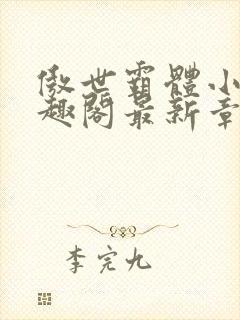 傲世霸體小
趣閣最新章
李完九